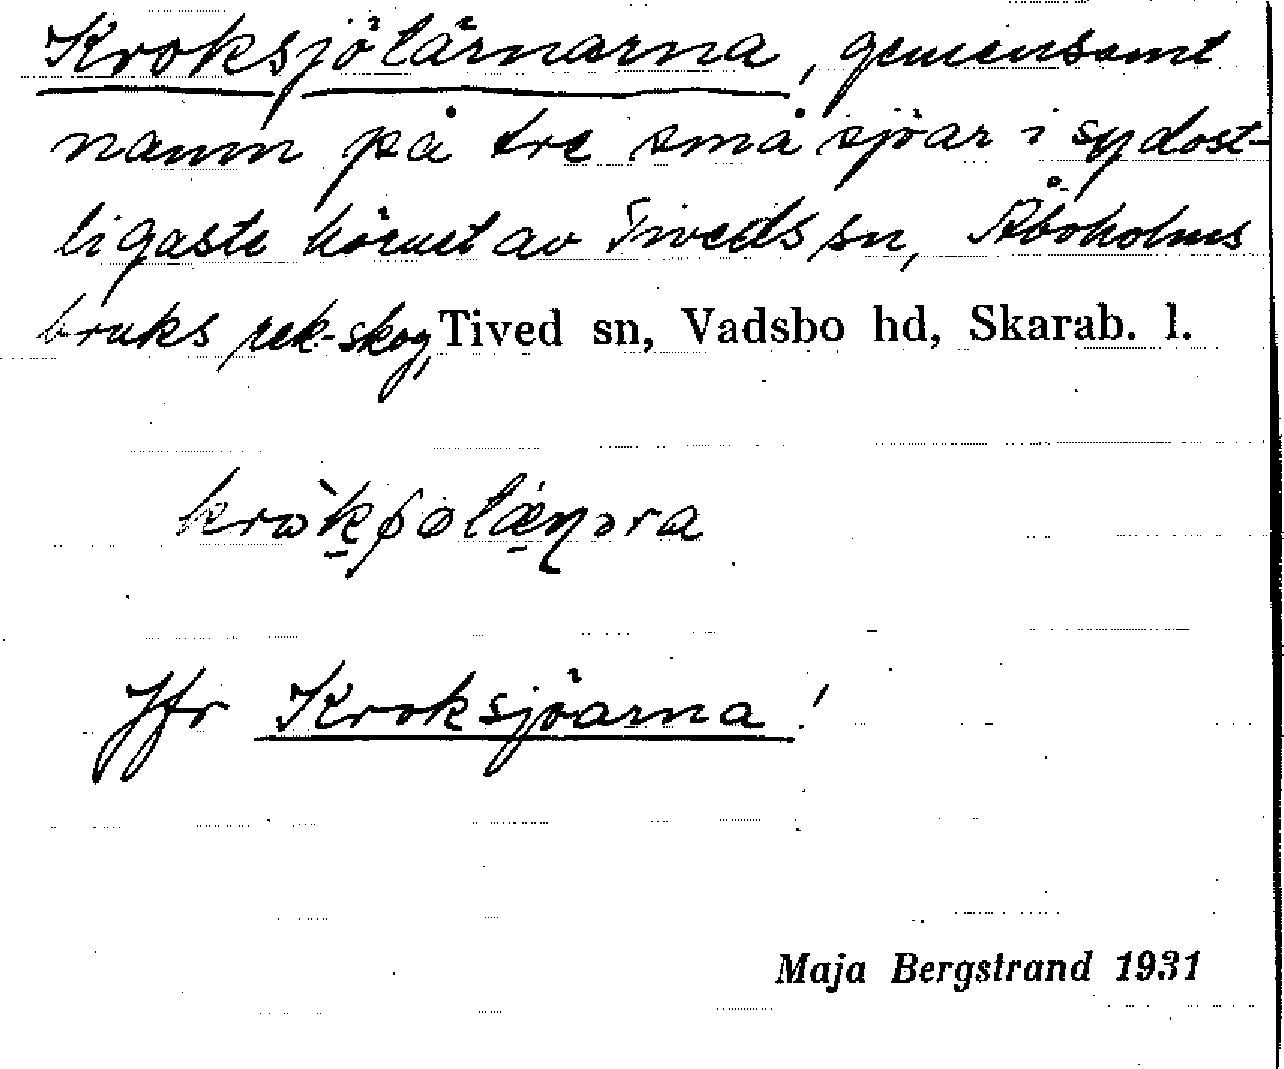 Kroksjötärnarna, gemensamt
namn på tre små sjöar i sydost-
ligaste hörnet av Tiveds sn, Åboholms
bruks rek-skog, Tived sn, Vadsbo hd, Skarab. l.
Jfr Kroksjöarna!
Maja Bergstrand 1931